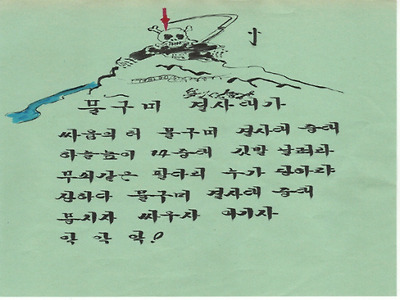 물구미 결사대가
싸움의 물구미 결사대 중대
하늘높이 중대 깃발 날려라
무쇠같은 팔다리 누가 당하랴
장하다 물구미 결사대 중대
뭉치자 싸우자 이기자
악 악 악!